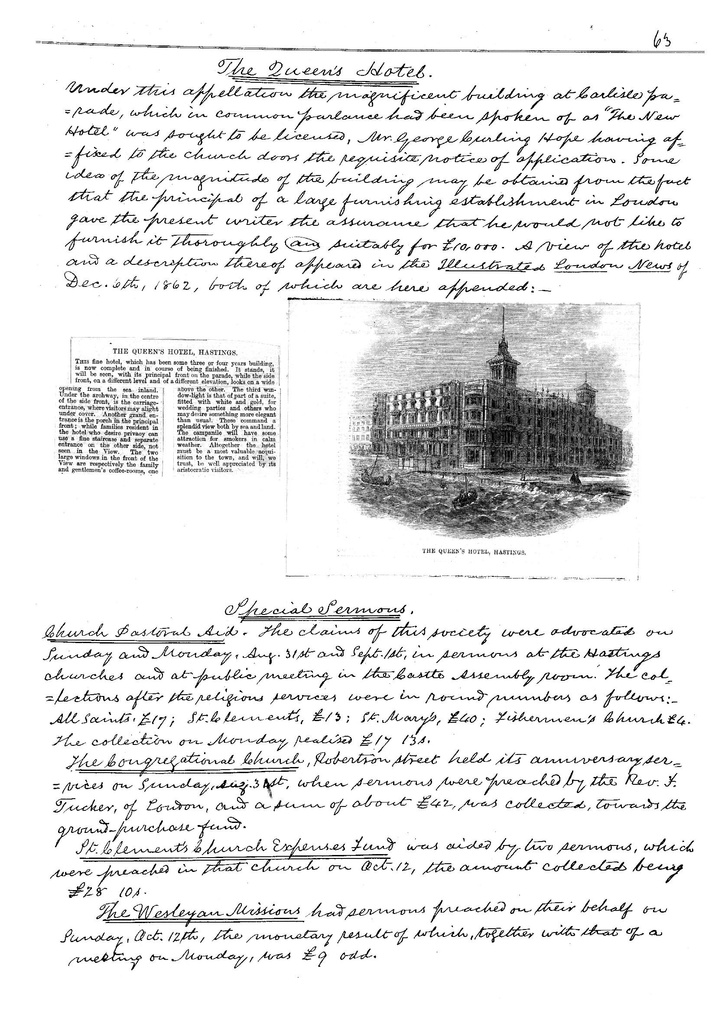 63
The Queen's Hotel.
Under this appellation the magnificent building at Carlisle pa-
=rade, which in common parlance had been spoken of as "The New
Hotel" was sought to be licensed, Mr. George Curling Hope having af-
=fixed to the church doors the requisite notice of application. Some
idea of the magnitude of the building may be obtained from the fact
that the principal of a large furnishing establishment in London
gave the present writer the assurance that he would not like to
furnish it thoroughly an suitably for £10,000. A view of the hotel
and a description thereof appeared in the Illustrated London News of
Dec. 6th, 1862, both of which are here appended:—
THE QUEEN'S HOTEL, HASTINGS.
THIS fine hotel, which has been some three or four years building,
is now complete and in course of being finished. It stands, it
will be seen, with its principal front on the parade, while the side
front, on a different level and of a different elevation, looks on a wide
opening from the sea inland.
Under the archway, in the centre
of the side front, is the carriage-
entrance, where visitors may alight
under cover. Another grand en-
trance is the porch in the principal
front; while families resident in
the hotel who desire privacy can
use a fine staircase and separate
entrance on the other side, not
seen in the View. The two
large windows in the front of the
View are respectively the family
and gentlemen's coffee-rooms, one
above the other. The third win-
dow-light is that of part of a suite,
fitted with white and gold, for
wedding parties and others who
may desire something more elegant
than usual. These command a
splendid view both by sea and land.
The campanile will have some
attraction for smokers in calm
weather. Altogether the hotel
must be a most valuable acqui-
sition to the town, and will, we
trust, be well appreciated by its
aristocratic visitors.
THE QUEEN'S HOTEL, HASTINGS.
Special Sermons.
Church Pastoral Aid. The claims of this society were advocated on
Sunday and Monday, Aug. 31st and Sept. 1st, in sermons at the Hastings
churches and at public meeting in the Castle Assembly room. The col-
=lections after the religious services were in round numbers as follows:-
All Saints, £17; St. Clements, £13; St. Mary's, £40; Fishermen's Church £4.
The collection on Monday realised £17 13s.
The Congregational Church, Robertson street held its anniversary ser-
=vices on Sunday, Aug. 31st, when sermons were preached by the Rev. F.
Tucker, of London, and a sum of about £42, was collected, towards the
ground-purchase fund.
St. Clement's Church Expenses Fund was aided by two sermons, which
were preached in that church on Oct. 12, the amount collected being
£28 10s.
The Wesleyan Missions had sermons preached on their behalf on
Sunday, Oct. 12th, the monetary result of which, together with that of a
meeting on Monday, was £9 odd.